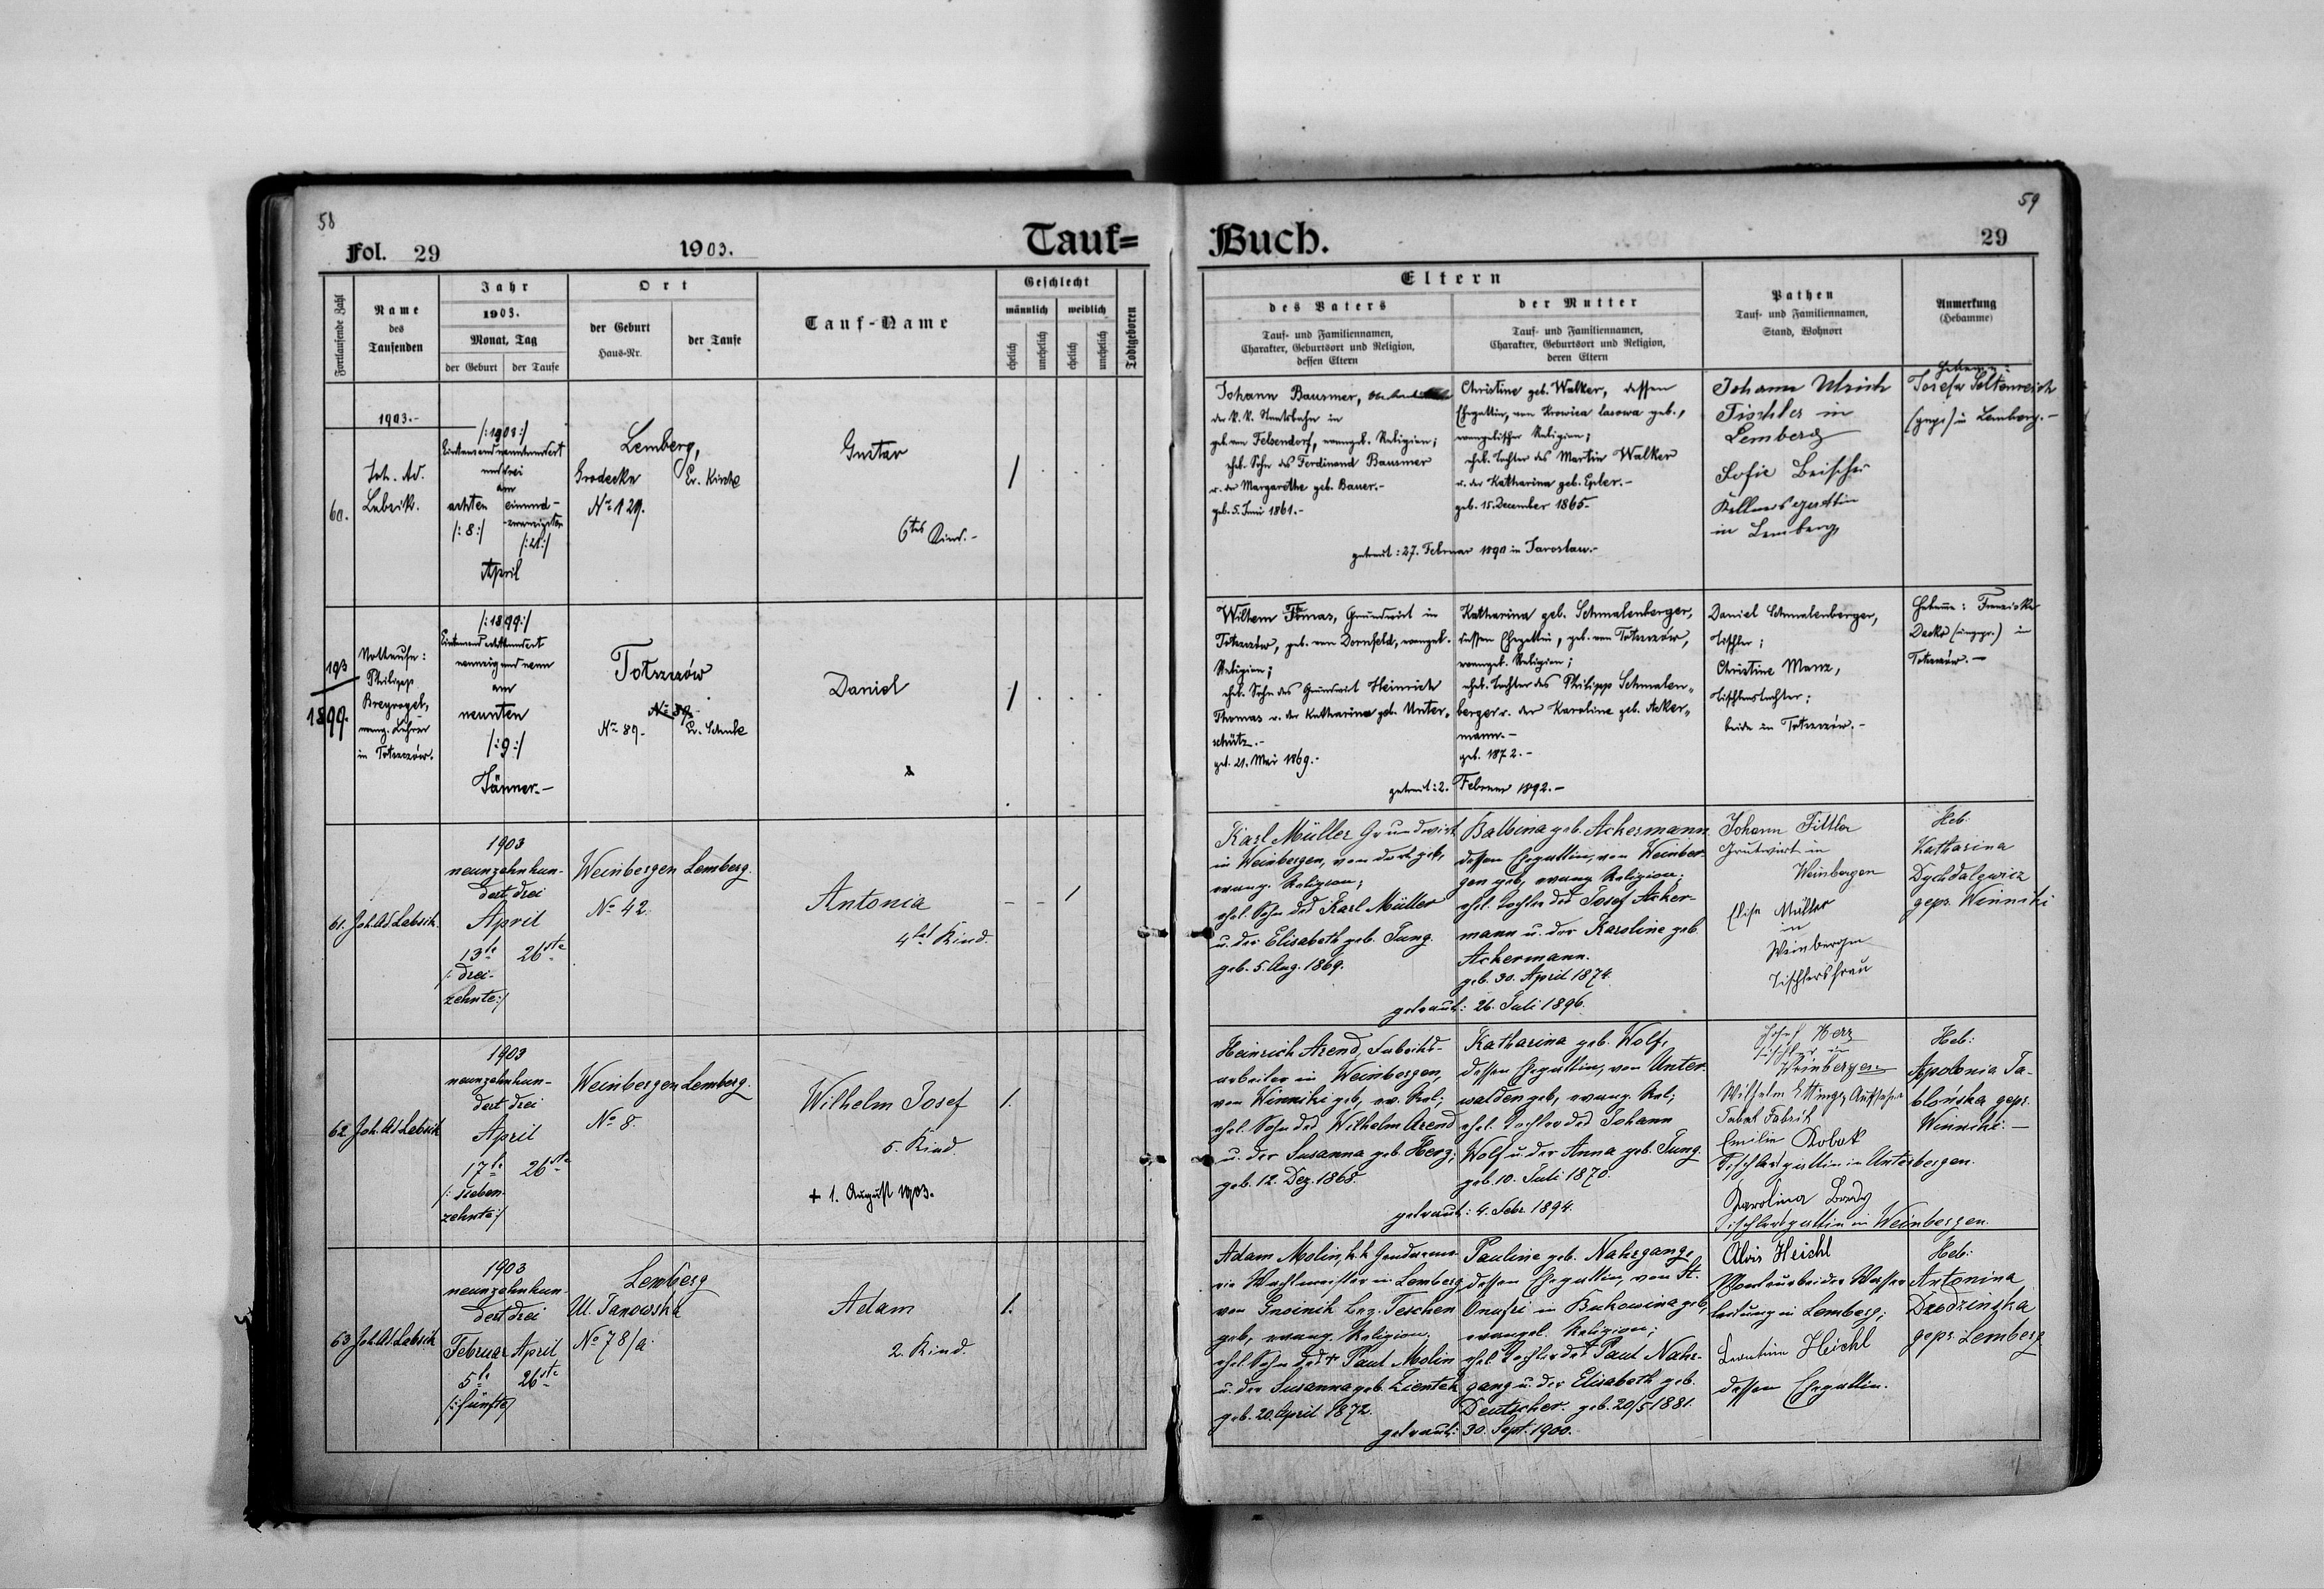 58
Fol. 29
1903.
Tauf=
Fortlaufende Zahl
Name
des
Taufenden
Jahr
1903.
Monat, Tag
der Geburt
der Taufe
Ort
der Geburt
Haus-Nr.
der Taufe
Tauf-Name
Geschlecht
männlich
weiblich
ehelich
unehelich
ehelich
unehelich
Todtgeboren
1903.-
60.
Joh. Ad.
Lebsik.
/:1903:/
Eintausendneunhundert
und drei
am
achten
/:8:/
einund-
zwanzigsten
/:21:/
April
Lemberg,
Grodecka
No 129.
Ev. Kirche
Gustav
6tes Kind.-
1
193
1899.
Nottaufe:
Philipp
Breyvogel,
evang. Lehrer
in Totszczów.
/:1899:/
Eintausend achthundert
neunzig und neun
am
neunten
/:9:/
Jänner.-
Totszczów
No 89.
No 89.-
Ev. Schule
Daniel
1
61.
Joh. Ad. Lebsik.
1903
neunzehnhun-
dert drei
April
13te
26ste
/:drei-
zehnte:/
Weinbergen
No 42.
Lemberg.
Antonia
4tes Kind.
1
62
Joh. Ad. Lebsik
1903
neunzehnhun-
dert drei
April
17te
26ste
/:sieben-
zehnte:/
Weinbergen
No 8.
Lemberg.
Wilhelm Josef
5. Kind.
+ 1. August 1903.
1.
63
Joh. Ad. Lebsik
1903
neunzehnhun-
dert drei
Februar
April
5te
26ste
/:fünfte/
Lemberg
Ul. Janowska
No 78/a.
Adam
2. Kind.
1.
59
Buch.
29
Eltern
des Vaters
Tauf- und Familiennamen,
Charakter, Geburtsort und Religion,
dessen Eltern
der Mutter
Tauf- und Familiennamen,
Charakter, Geburtsort und Religion,
deren Eltern
Pathen
Tauf- und Familiennamen,
Stand, Wohnort
Anmerkung
(Hebamme)
Johann Bausmer,
der k.k. Staatsbahn in
geb. von Felsendorf, evangel. Religion;
ehel. Sohn des Ferdinand Bausmer
u. der Margarethe geb. Bauer.-
geb. 5. Juni 1861.-
Christine geb. Walker, dessen
Ehegattin, von Krowica lasowa geb.,
evangelischer Religion;
ehel. Tochter des Martin Walker
u. der Katharina geb. Epler.-
geb. 15. December 1865.-
getraut: 27. Februar 1890 in Jaroslau.-
Johann Ulrich
Tischler in
Lemberg
Sofie Beischer
Kellnersgattin
in Lemberg
Hebamme:
Josefa Soltenreich
(gepr.) in Lemberg.-
Wilhem Thomas, Grundwirt in
Totszczów, geb. von Dornfeld, evangel.
Religion;
ehel. Sohn des Grundwirt Heinrich
Thomas u. der Katharina geb. Unter-
schütz.-
geb. 21. Mai 1869.-
Katharina geb. Schmalenberger,
dessen Ehegattin, geb. von Totszczów,
evangel. Religion;
ehel. Tochter des Philipp Schmalen-
berger u. der Karoline geb. Acker-
mann.-
geb. 1872.-
getraut: 2. Februar 1892.-
Daniel Schmalenberger,
Tischler;
Christine Manz,
Tischlerstochter;
beide in Totszczów.-
Hebamme: Franziska
Dacko (ungepr.) in
Totszczów.-
Karl Müller Grundwirt
in Weinbergen, von dort geb,
evang. Religion;
ehel. Sohn des Karl Müller
u. der Elisabeth geb. Jung.
geb. 5. Aug. 1869.
Balbina geb. Ackermann
dessen Ehegattin, von Weinber-
gen geb, evang Religion;
ehel. Tochter des Josef Acker-
mann u. der Karoline geb.
Ackermann.
geb. 30. April 1874.
getraut: 26. Juli 1896.
Johann Tittler
Grutwirt in
Weinbergen
Elise Müller
in
Weinbergen
Tischlersfrau
Heb:
Katharina
Dychdalewicz
gepr. Winniki
Heinrich Arend, Fabriks-
arbeiter in Weinbergen,
von Winniki geb, ev. Rel;
ehel. Sohn des Wilhelm Arend
u. der Susanna geb. Herz;
geb. 12. Dez. 1868.
Katharina geb. Wolf,
dessen Ehegattin, von Unter-
walden geb, evang. Rel;
ehel. Tochter des Johann
Wolf u. der Anna geb. Jung.
geb. 10. Juli 1870.
getraut: 4. Febr 1894.
Josef Herz
Tischler in
Weinbergen
Wilhelm Ettinger Aufseher
Tabak Fabrik
Emilie Robak
Tischlersgattin in Unterbergen.
Karolina Bredy
Tischlersgattin in Weinbergen.
Heb:
Apolonia Ja-
blońska gepr.
Winniki.-
Adam Molin, k.k. Gendarme-
rie Wachtmeister in Lemberg,
von Gnoinik Bez. Teschen
geb, evang. Religion.
ehel. Sohn des + Paul Molin
u. der Susanna geb. Zientek
geb. 20. April 1872.
Pauline geb. Nahrgang,
dessen Ehegattin, von St.
Onufri in Bukowina geb,
evangel. Religion;
ehel. Tochter des + Paul Nahr-
gang u. der Elisabeth geb.
Deutscher. geb. 20/5 1881.
getraut: 30. Sept. 1900.
Alois Heichl
Vorarbeiter Wasser
leitung in Lemberg;
Leontine Heichl
dessen Ehegattin.
Heb:
Antonina
Dzodzinska
gepr. Lemberg